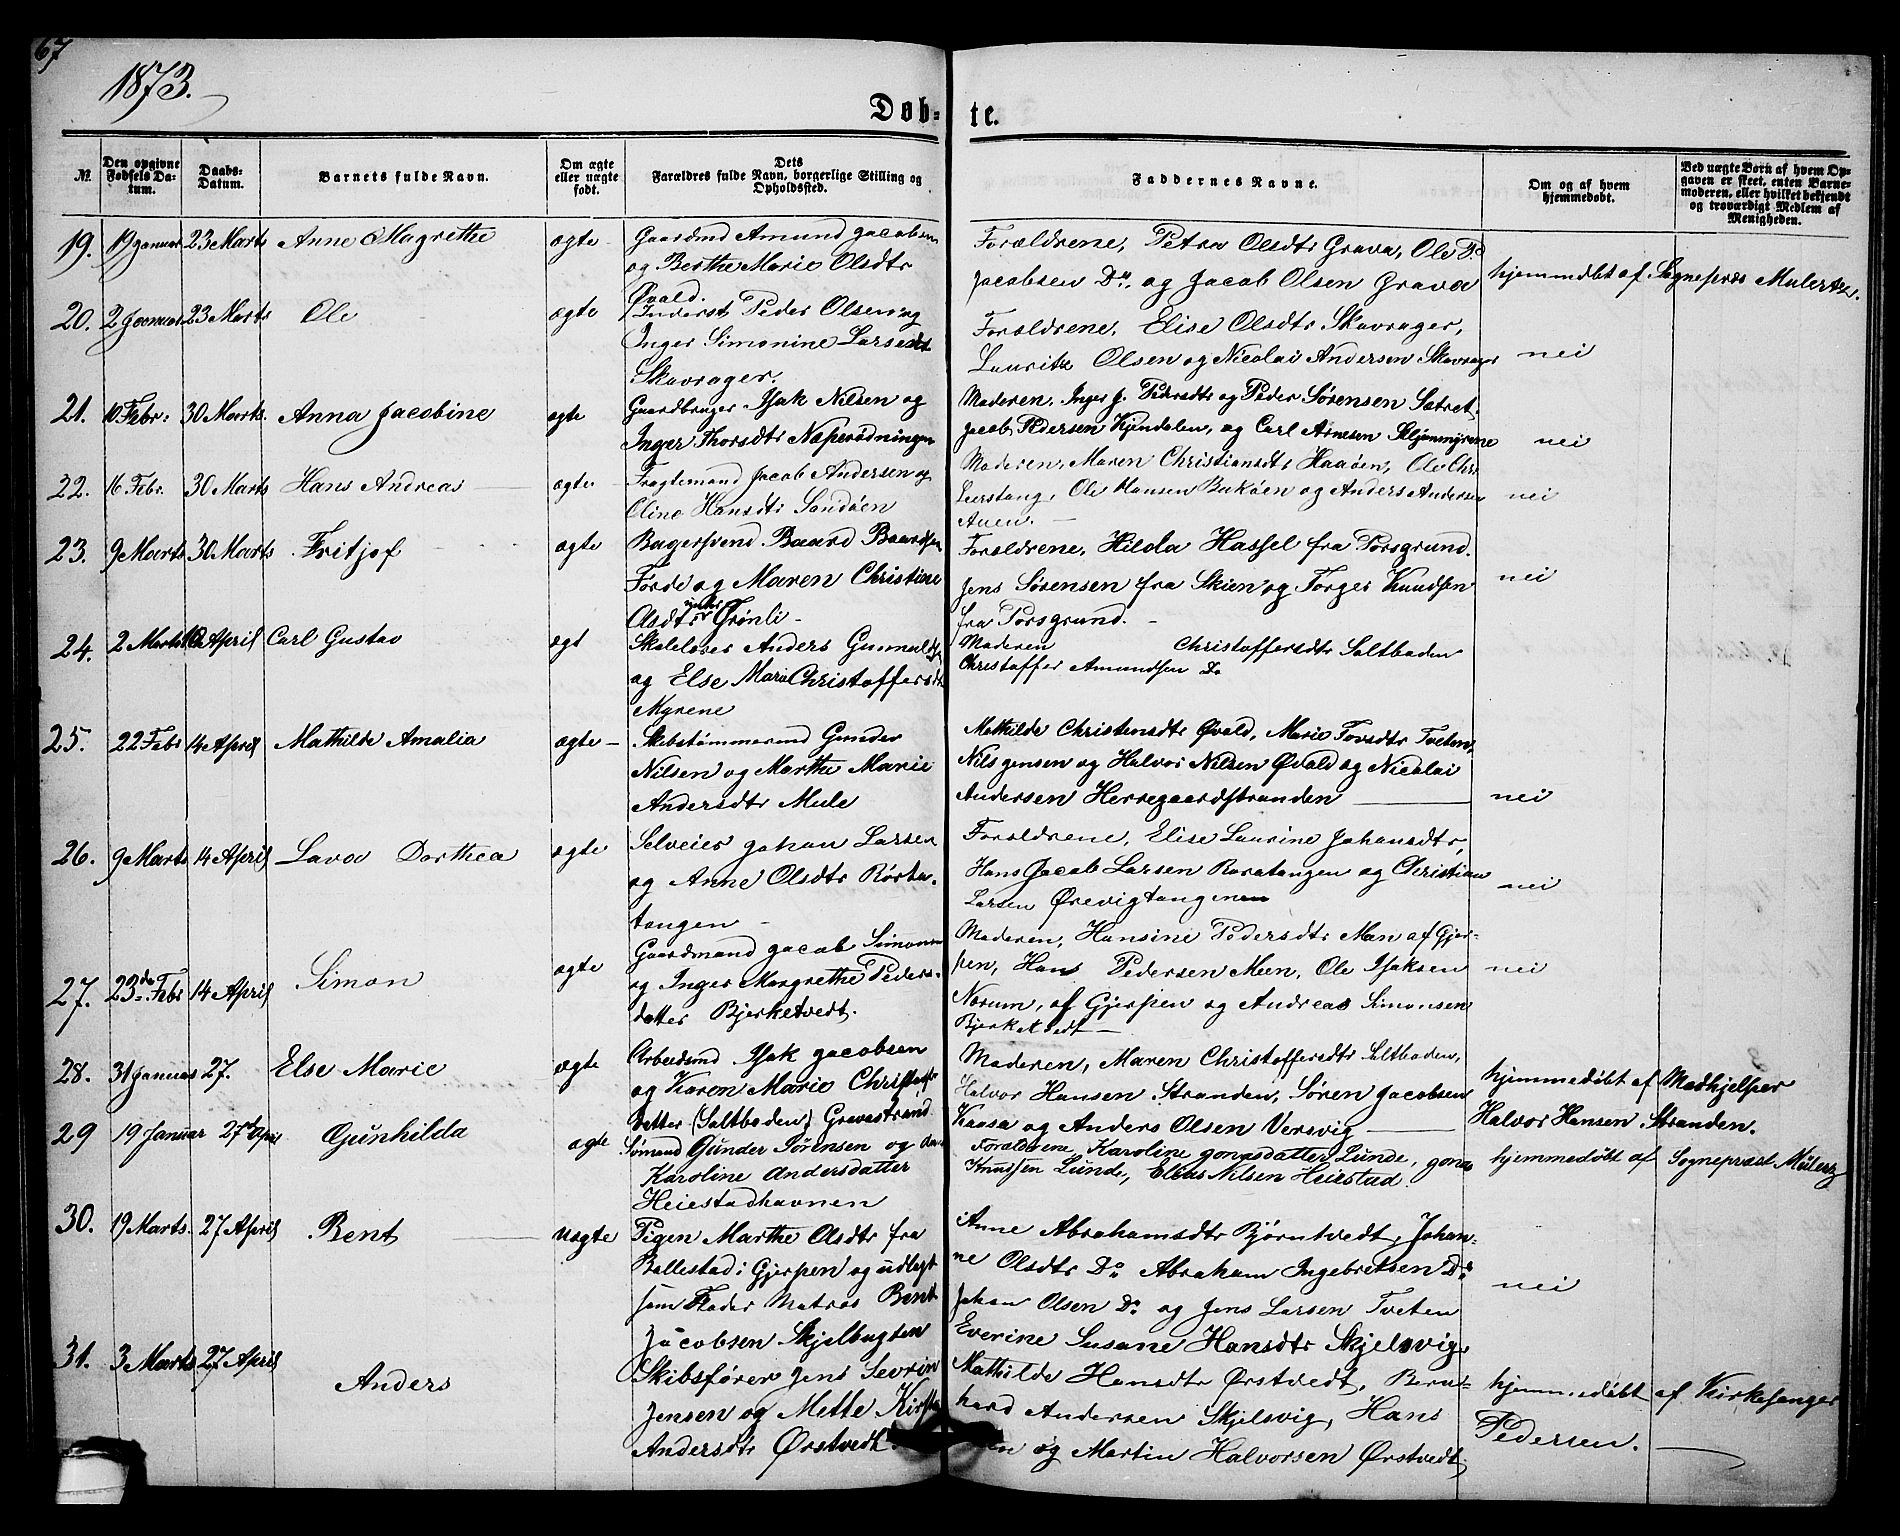 67
1873.
Døb- te.
No.
Den opgivne Fødsels Da-tum.
Daabs-Datum.
Barnets fulde Navn.
Om ægte eller uægte født.
Dets Forældres fulde Navn, borgerlige Stilling og Opholdssted.
Faddernes Navne.
Om og af hvem hjemmedøbt.
Ved uægte Børn af hvem Op-gaven er skeet, enten Barne-moderen, eller hvilket bekjendt og troværdigt Medlem af Menigheden.
19. 19 Januar 23 Marts Anne Magrethe ægte
Gaardmd Amund Jacobsen
og Berthe Marie Olsdtr
Øvald.
Forældrene, Petra Olsdtr Grava, Ole P.
Jacobsen Do. og Jacob Olsen Grava
hjemmedøbt af Sognepræs Mulertz.
20. 2 Januar 23 Marts Ole ægte
Inderst Peder Olsen og
Inger Simonine Larsdtr
Skavrager.
Forældrene, Elise Olsdtr Skavrager,
Lauritz Olsen og Nicolai Andersen Skavrager
nei
21. 10 Febr. 30 Marts. Anna Jacobine ægte
Gaardbruger Isak Nilsen og
Inger Thorsdtr Næsrødningen
Moderen, Inger J. Pedersdtr og Peder Sørensen Sætret,
Jacob Pedersen Kjendalen, og Carl Arnesen
nei
22. 16 Febr. 30 Marts Hans Andreas ægte
Fragtemand Jacob Andersen og
Oline Hansdtr Sandøen
Moderen, Maren Christiansdtr Haaøen, Ole Chr.
Leerstang, Ole Hansen Bukøen og Anders Andersen
Auen.
nei
23. 9 Marts 30 Marts Fritjof ægte
Bagersvend Baard Baardsen
Førde og Maren Christine
Olsdtr Grønli
Forældrene, Hilda Hassel fra Porsgrund.
Jens Sørensen fra Skien og Torger Knudsen
fra Porsgrund.
nei
24. 2 Marts April Carl Gustav ægt
Skolelærer Anders
og Else Marie Christoffersdtr
Myrene
Moderen Christoffersdtr Saltboden
Christoffer Amundsen Do
25. 22 Febr 14 April Mathilde Amalia ægte
Skibstømmermd Gunder
Nilsen og Marthe Marie
Andersdtr Mule
Mathilde Christensdtr Øvald, Marie Torsdtr Tveten,
Nils Jensen og Halvor Nilsen Øvald og Nicolai
Andersen Herregaardsstranden
nei
26. 9 Marts 14 April Lava Dorthea ægte
Selveier Johan Larsen
og Anne Olsdtr Rørha-
tangen
Forældrene, Elise Laurine Johansdtr,
Hans Jacob Larsen Raratangen og Christian
Larsen Ørevigtangen
nei
27. 23de Febr 14 April Simon ægte
Gaardmand Jacob Simonsen
og Inger Margrethe Peders-
datter Bjerketvedt.
Moderen, Hansine Pedersdtr Meen af Gjer-
pen, Hans Pedersen Meen, Ole Isaksen
Norum, af Gjerpen og Andreas Simonsen
Bjerketvedt
nei
28. 31 Januar 27. Else Marie ægte
Arbeidsmd Isak Jacobsen
og Karen Marie Christoffers
detter (Saltboden) Gravastrand
Moderen, Maren Christoffersdtr Saltboden,
Halvor Hansen Stranden, Søren Jacobsen
Kaasa og Anders Olsen Versvig
hjemmedøbt af Medhjelper
Halvor Hansen Stranden.
29 19 Januar 27 April Gunhilda ægte
Sømand Gunder Sørensen og
Karoline Andersdatter
Heiestadhavnen
Forældrene, Karoline Jonasdatter Lunde, Jonas
Knudsen Lunde, Elias Nilsen Heiestad.
hjemmedøbt af Sognepræst Mülertz
30. 19 Marts. 27 April Bent uægte
Pigen Marthe Olsdtr fra
Ballestad i Gjerpen og udlagt
som Fader Matros Bent
Jacobsen Skjelbugten
Anne Abrahamsdtr Bjørntvedt, Johan-
ne Olsdtr Do. Abraham Ingebretsen Do.
Johan Olsen Do. og Jens Larsen Tveten
nei
31. 3 Marts 27 April Anders
Skibsfører Jens Sevrin
Jensen og Mette Kirst
Andersdtr Ørstvedt
Everine Susane Hansdtr Skjelsvig,
Mathilde Hansdtr Ørstvedt, Bern-
hard Andersen Skjelsvig, Hans
og Martin Halvorsen Ørstvedt
hjemmedøbt af Kirkesanger
Pedersen.